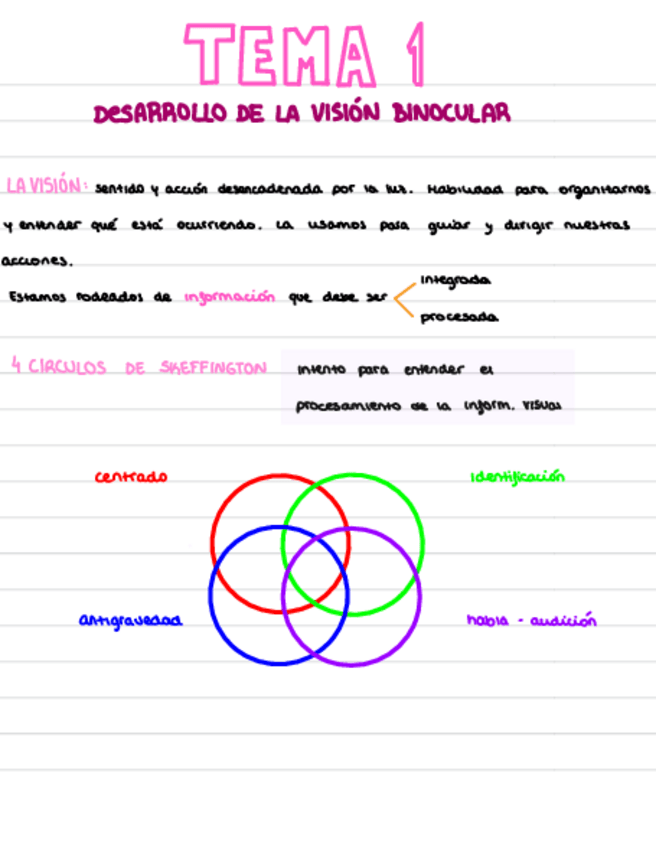 TEMA 1
DESARROLLO DE LA VISIÓN BINOCULAR
LA VISIÓN: sentido y acción desencadenada por la luz. Habilidad para organizarnos
y entender qué está ocurriendo. La usamos para guiar y dirigir nuestras
acciones.
Estamos rodeados de información que debe ser
integrada
procesada
4 CIRCULOS DE SKEFFINGTON
intento para entender el
procesamiento de la inform. visual
centrado
identificación
antigravedad
habla - audición